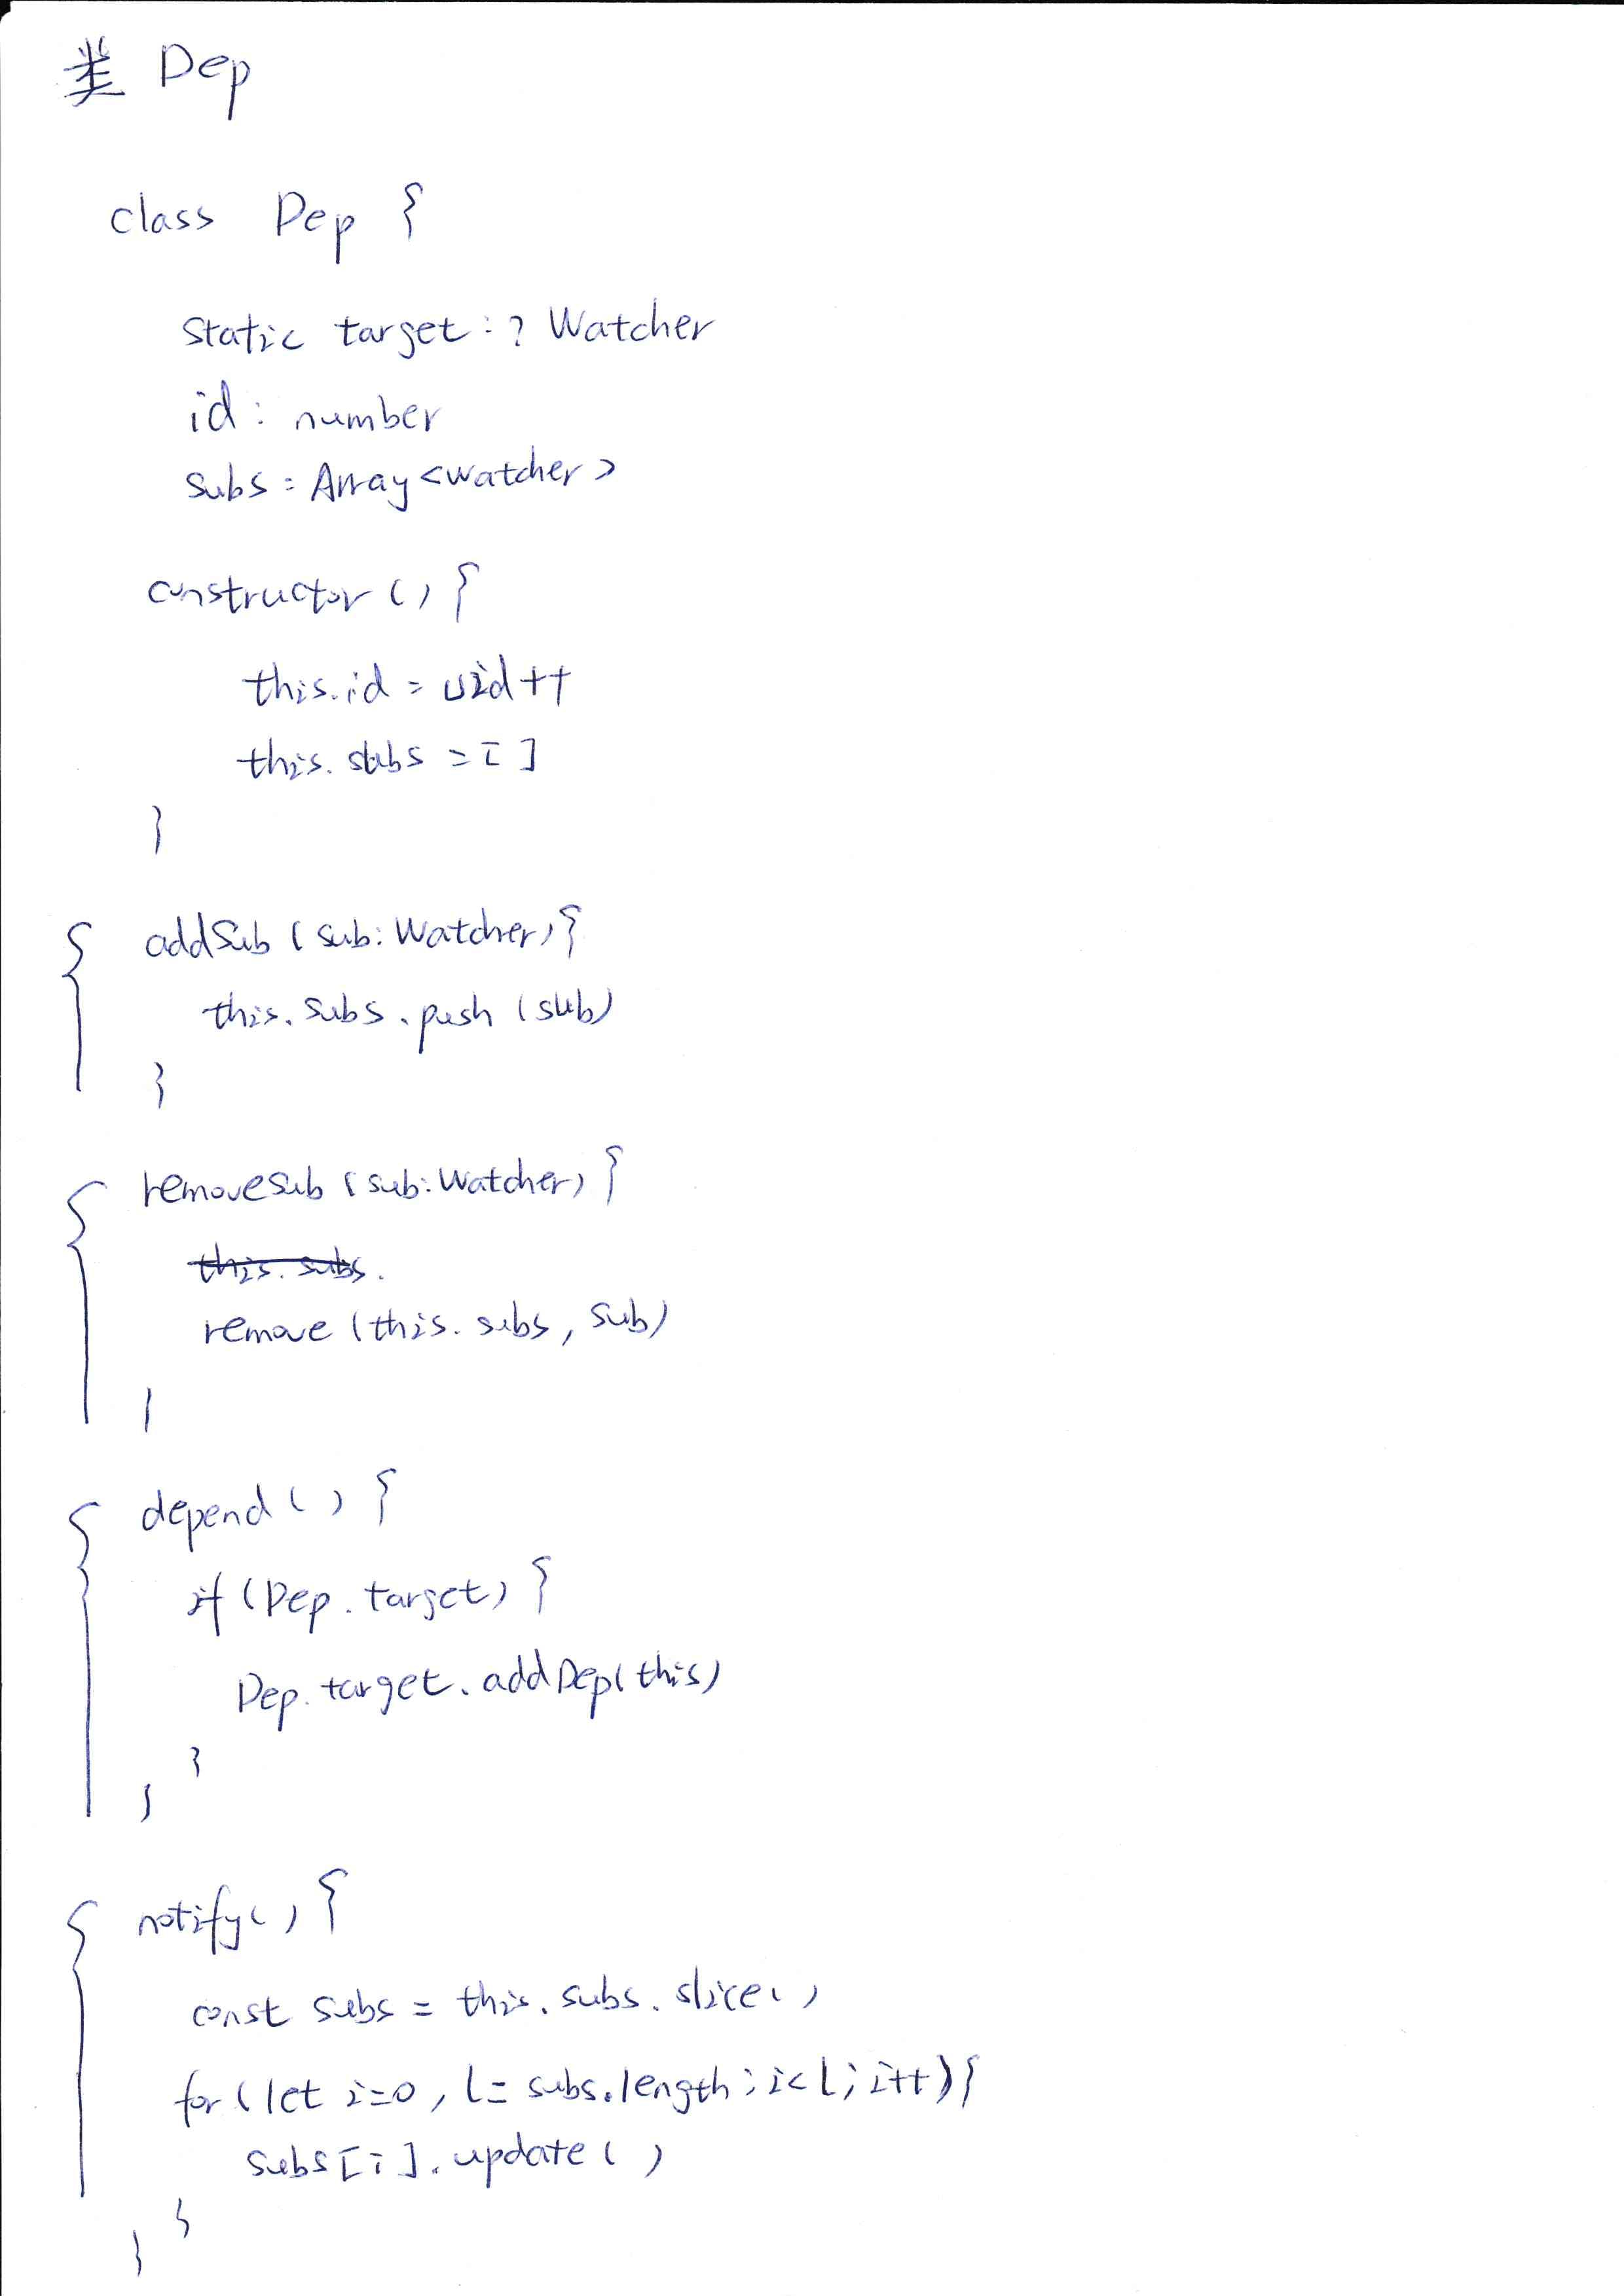 类 Dep
class Dep {
static target:? Watcher
id: number
subs: Array<watcher>
constructor () {
this.id = uid++
this.subs = []
}
addSub (sub: Watcher) {
this.subs.push (sub)
}
removeSub (sub: Watcher) {
this.subs.
remove (this.subs, sub)
}
depend () {
if (Dep.target) {
Dep.target.addDep(this)
}
}
notify () {
const subs = this.subs.slice()
for (let i=0, l= subs.length; i<l; i++) {
subs[i].update ()
}
}